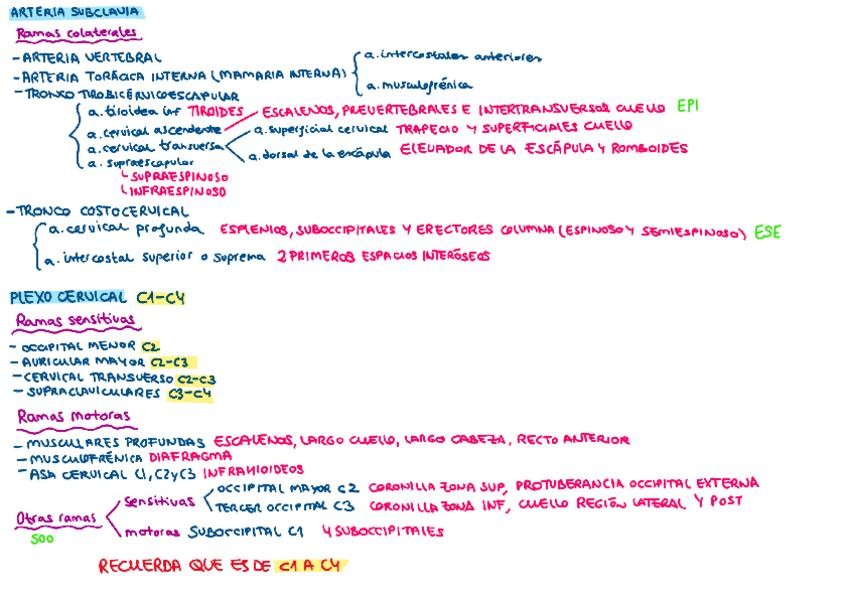 ARTERIA SUBCLAVIA
Ramas colaterales
- ARTERIA VERTEBRAL
- ARTERIA TORÁCICA INTERNA (MAMARIA INTERNA) a. intercostales anteriores
a. musculofrénica
- TRONCO TIROBICÉRVICOESCAPULAR
a. tiroidea inf TIROIDES
a. cervical ascendente ESCALENOS, PREVERTEBRALES E INTERTRANSVERSOS CUELLO EPI
a. cervical transversa a. superficial cervical TRAPECIO Y SUPERFICIALES CUELLO
a. dorsal de la escápula ELEVADOR DE LA ESCÁPULA Y ROMBOIDES
a. supraescapular
SUPRAESPINOSO
INFRAESPINOSO
- TRONCO COSTOCERVICAL
a. cervical profunda ESPLENIOS, SUBOCCIPITALES Y ERECTORES COLUMNA (ESPINOSO Y SEMIESPINOSO) ESE
a. intercostal superior o suprema 2 PRIMEROS ESPACIOS INTERÓSEOS
PLEXO CERVICAL C1-C4
Ramas sensitivas
- OCCIPITAL MENOR C2
- AURICULAR MAYOR C2-C3
- CERVICAL TRANSVERSO C2-C3
- SUPRACLAVICULARES C3-C4
Ramas motoras
- MUSCULARES PROFUNDAS ESCALENOS, LARGO CUELLO, LARGO CABEZA, RECTO ANTERIOR
- MUSCULOFRÉNICA DIAFRAGMA
- ASA CERVICAL C1, C2 y C3 INFRAHIOIDEOS
Otras ramas
SOO
sensitivas OCCIPITAL MAYOR C2 CORONILLA ZONA SUP, PROTUBERANCIA OCCIPITAL EXTERNA
TERCER OCCIPITAL C3 CORONILLA ZONA INF, CUELLO REGIÓN LATERAL Y POST
motoras SUBOCCIPITAL C1 4 SUBOCCIPITALES
RECUERDA QUE ES DE C1 A C4